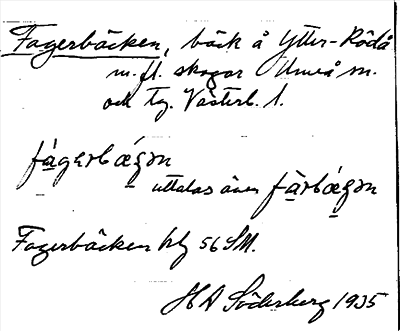 Fagerbäcken, bäck å Ytter-Rödå
m. fl. skogar Umeå sn.
och tg. Västerb. l.
fágerbǽgən
uttalas även fàrbǽgən
Fagerbäcken blg 56 SM.
H A Söderberg 1935